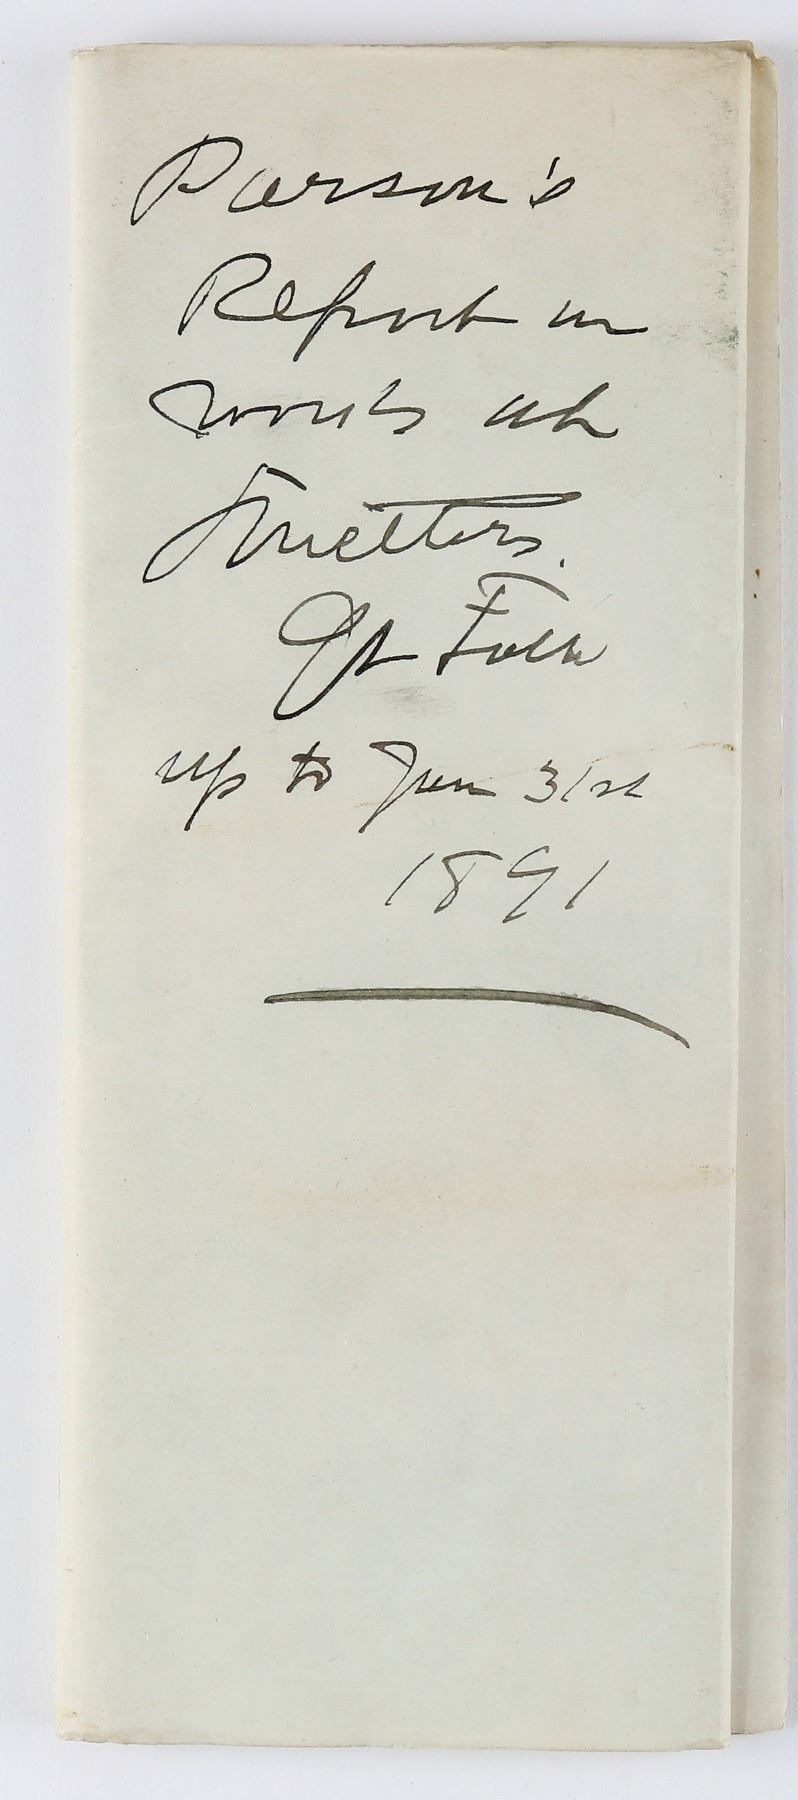 Parson's
Report on
work at
Smelters.
Gt Falls
up to Jan 31st
1891